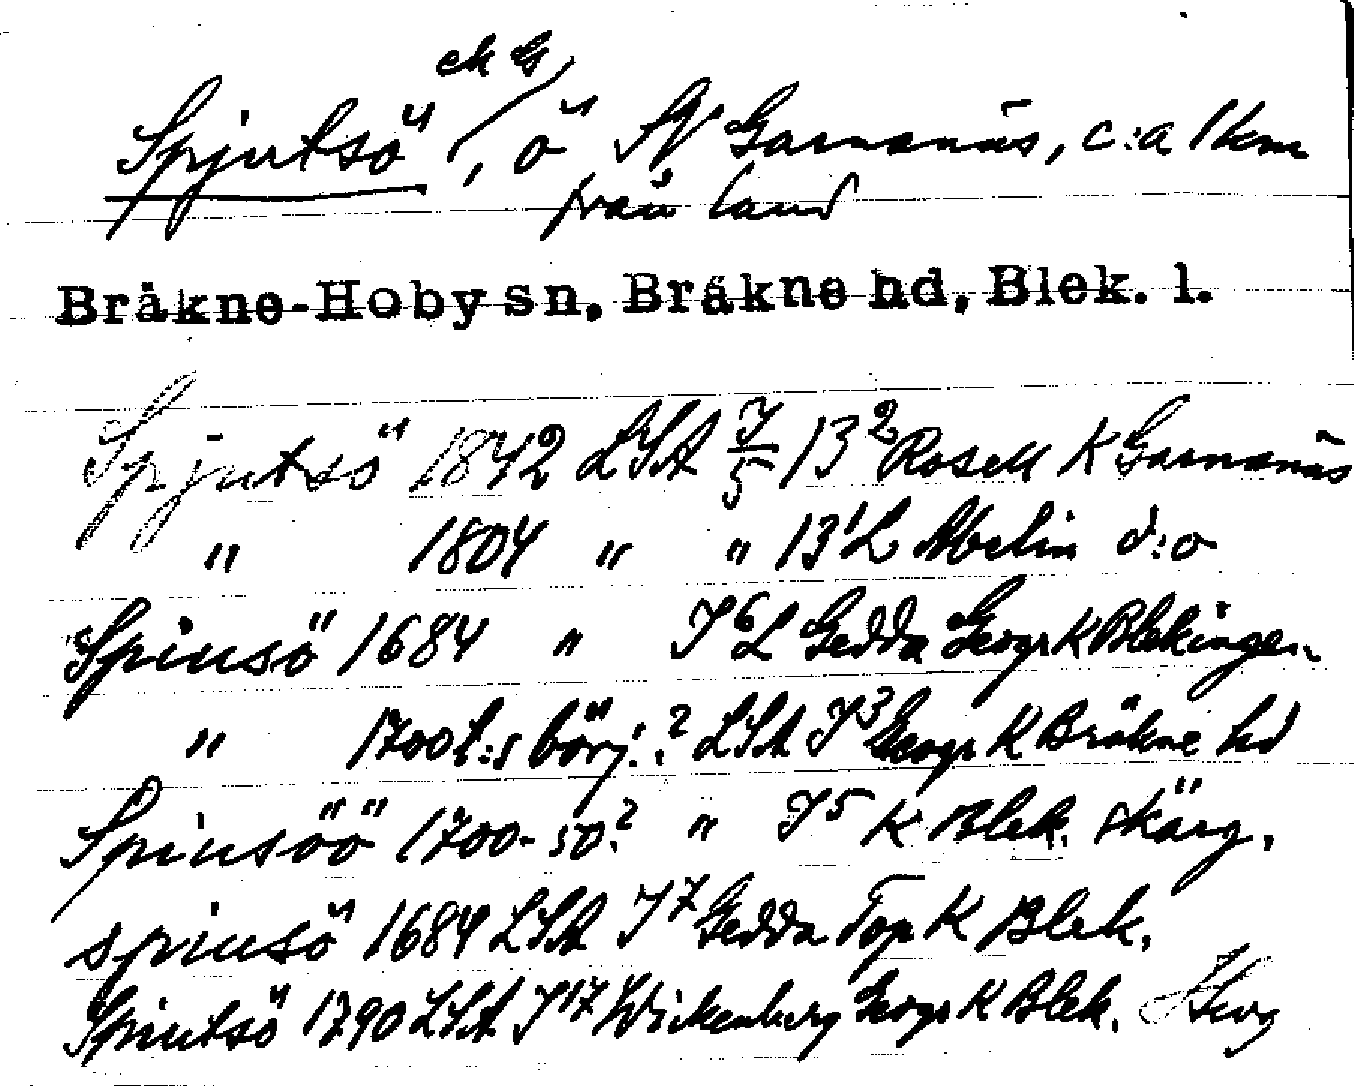 ek G
Spjutsö, ö SV Garnanäs, c:a 1 km
från land
Bräkne-Hoby sn, Bräkne hd, Blek. l.
Spjutsö 1842 LSA I/5 13² Rosell K Garnanäs
" 1804 " " 13¹ L Melin d:o
Spiusö 1684 " I⁶ L Gedda Geogr K Blekingen
" 1700 t:s börj.? LSA I³ Geogr K Bräkne hd
Spiusöö 1700-50? " I⁵ K Blek. skärg.
spiusö 1684 LSA I⁷ Gedda Top K Blek.
Spiutsö 1790 LSA I¹⁷ Wickenberg Geogr K Blek.